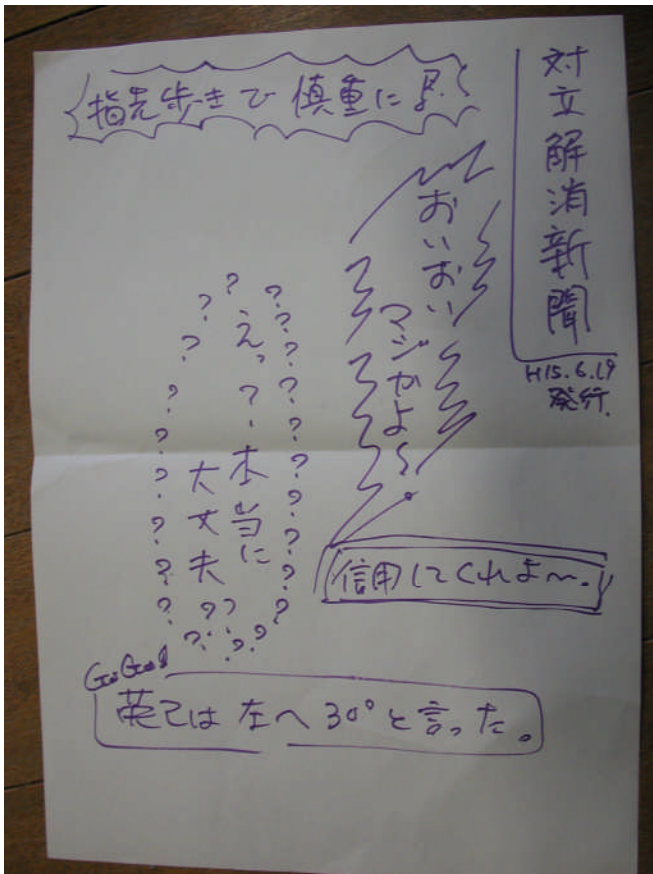 対立解消新聞
H15.6.19
発行.
指先歩きで慎重に
おいおい
マジかよ〜。
信用してくれよ〜.
えっ?本当に
大丈夫??
Go Go!
英己は左へ30°と言った。